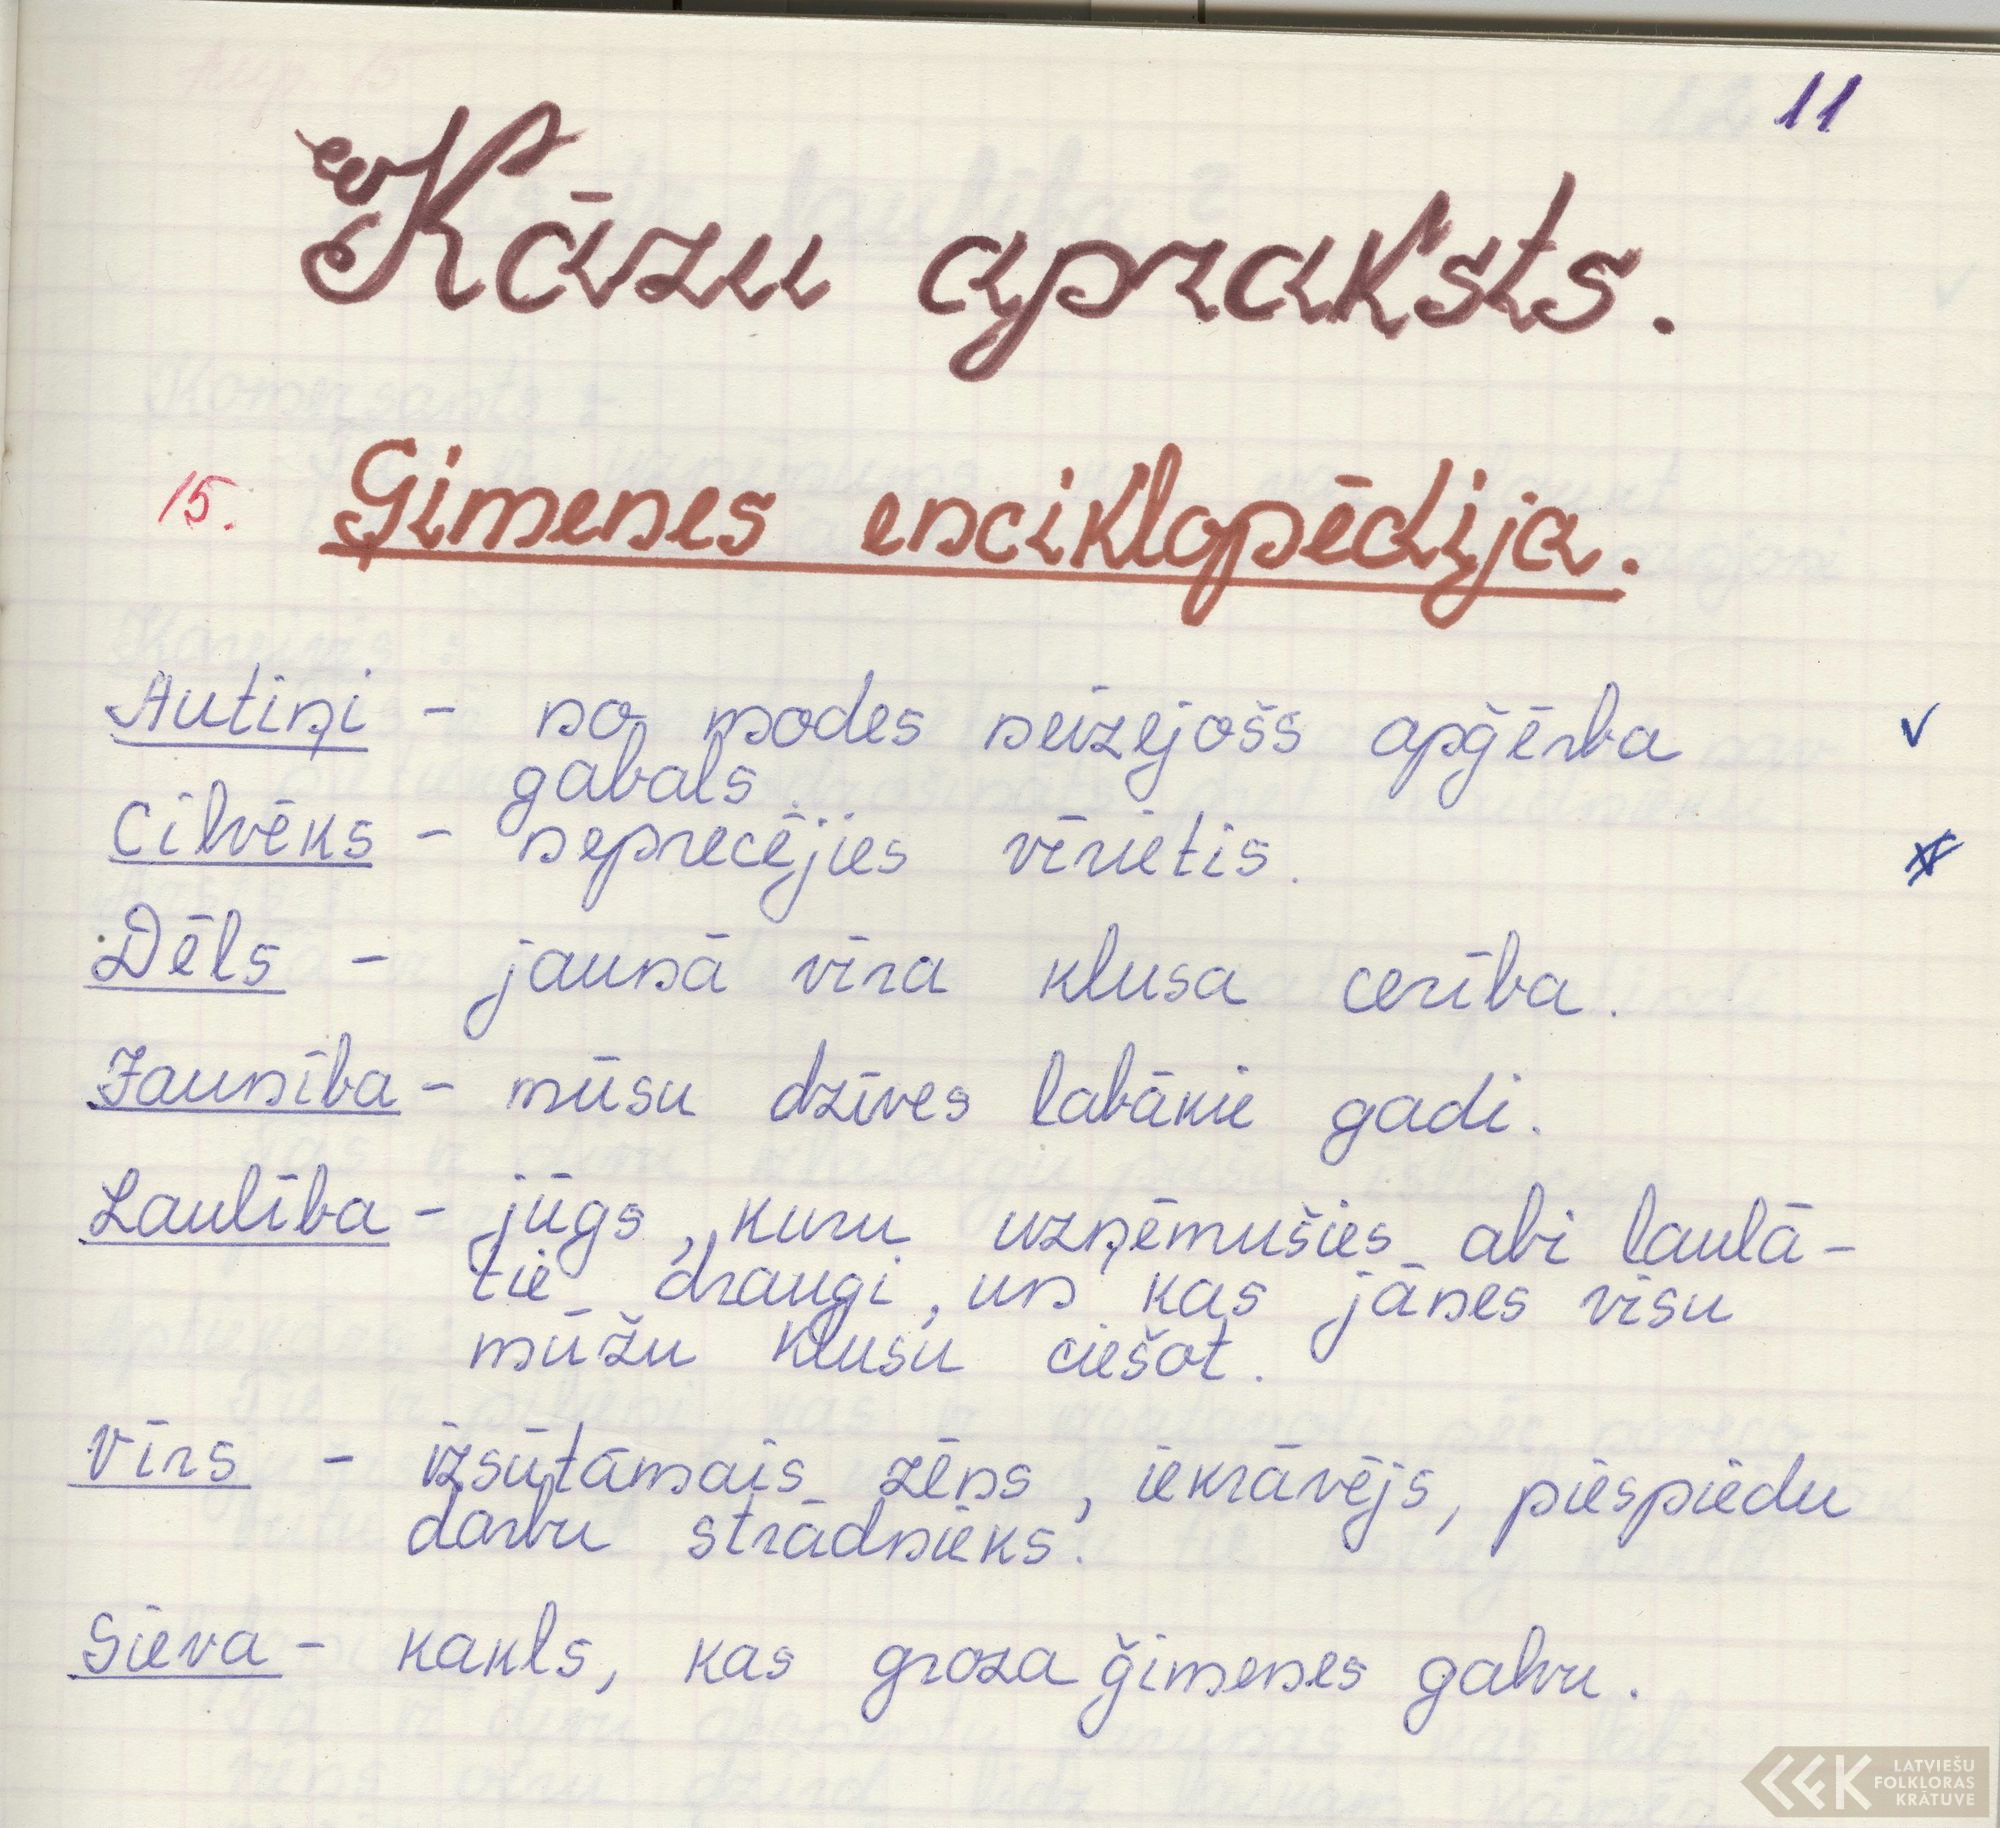 11
Kāzu apraksts.
15. Ģimenes enciklopēdija.
Autiņi - no modes neizejošs apģērba
gabals.
Cilvēks - neprecējies vīrietis.
Dēls - jaunā vīra klusa cerība.
Jaunība - mūsu dzīves labākie gadi.
Laulība - jūgs, kuru uzņēmušies abi laulā-
tie draugi, un kas jānes visu
mūžu klusu ciešot.
Vīrs - izsūtāmais zēns, iekrāvējs, piespiedu
darbu strādnieks.
Sieva - kakls, kas groza ģimenes galvu.
LATVIEŠU
FOLKLORAS
KRĀTUVE